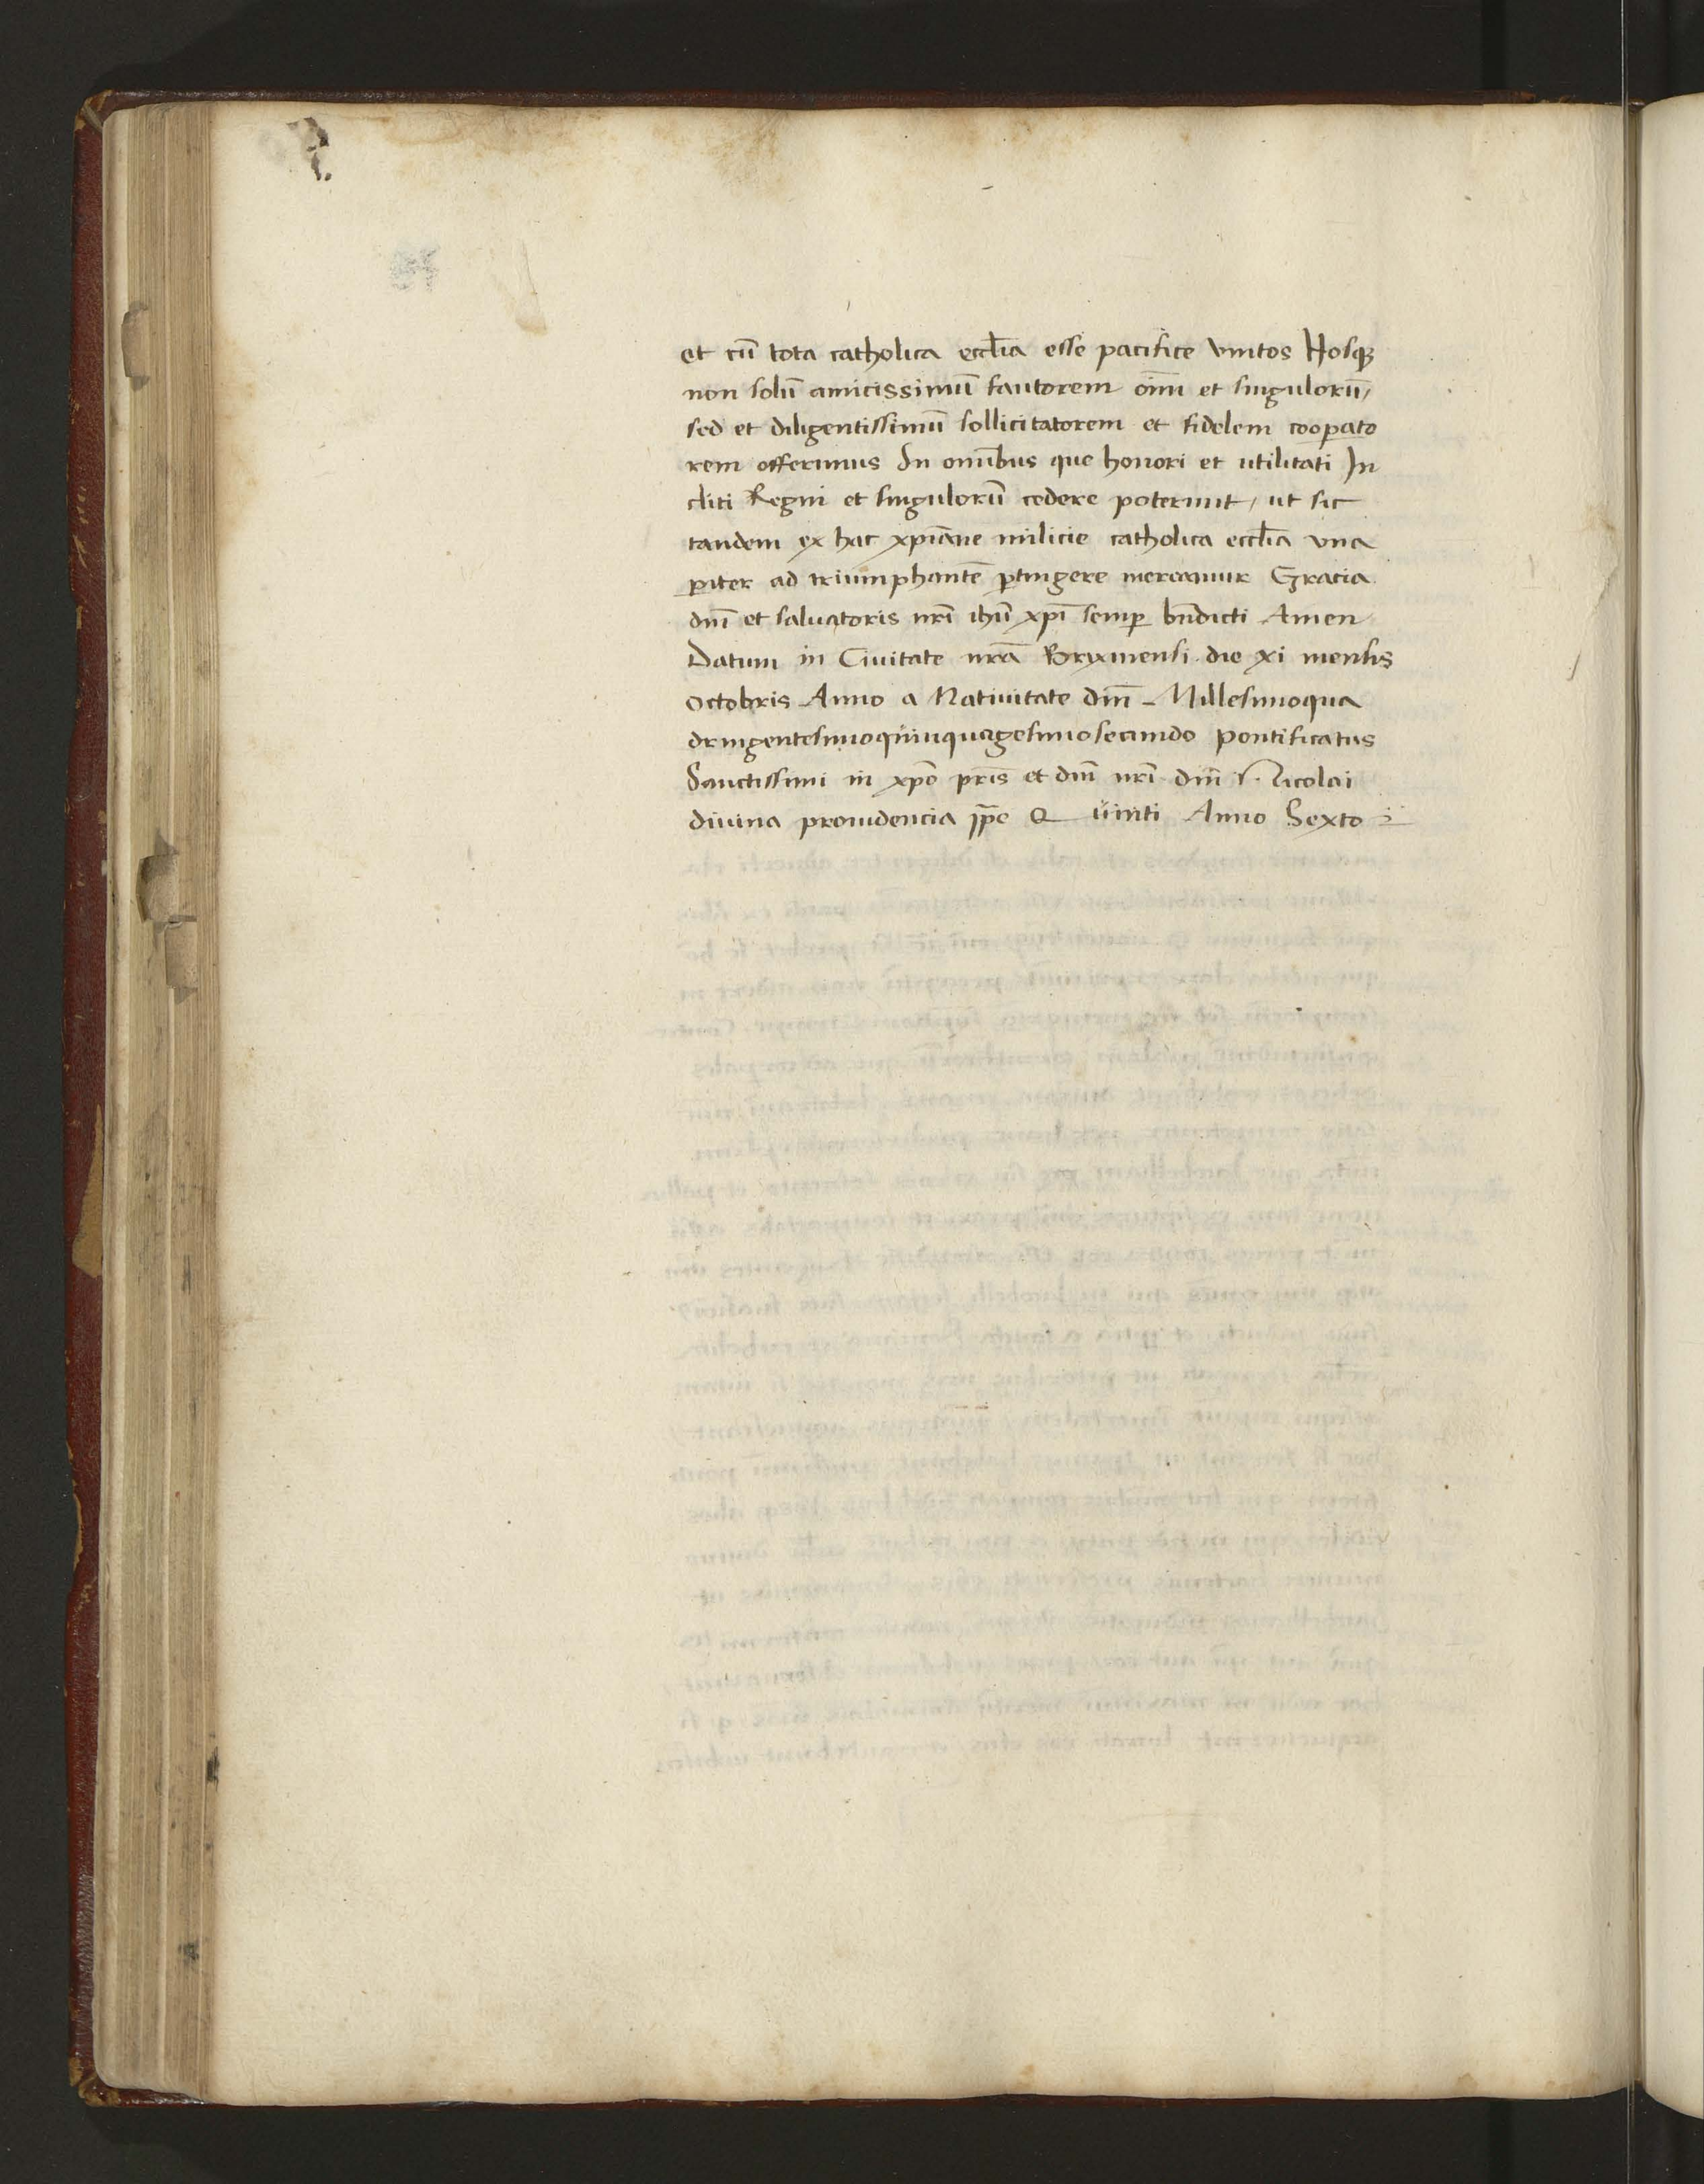 et cū tota catholica ecclīa esse pacifice vnitos Nosq3
non solū amicissimū fautorem oīm et singulorū,
sed et diligentissimū sollicitatorem et fidelem coop̄ato
rem offerimus In omībus que honori et utilitati In
cliti Regni et singulorū cedere poterunt, ut sic
tandem ex hac xp̄iane milicie catholica ecclīa vna
p̱iter ad triumphantē p̱tingere mereamur Gracia
dn̄i et saluatoris nr̄i ihū xp̄i semp̱ bn̄dicti Amen
Datum in Ciuitate nrā Bryxinensi die xi mensis
Octobris Anno a Natiuitate dn̄i Millesimoqua
dringentesimoquinquagesimosecundo Pontificatus
Sanctissimi in xp̄o pr̄is et dn̄i nr̄i dn̄i Nicolai
diuina prouidencia pp̄e Quinti Anno Sexto